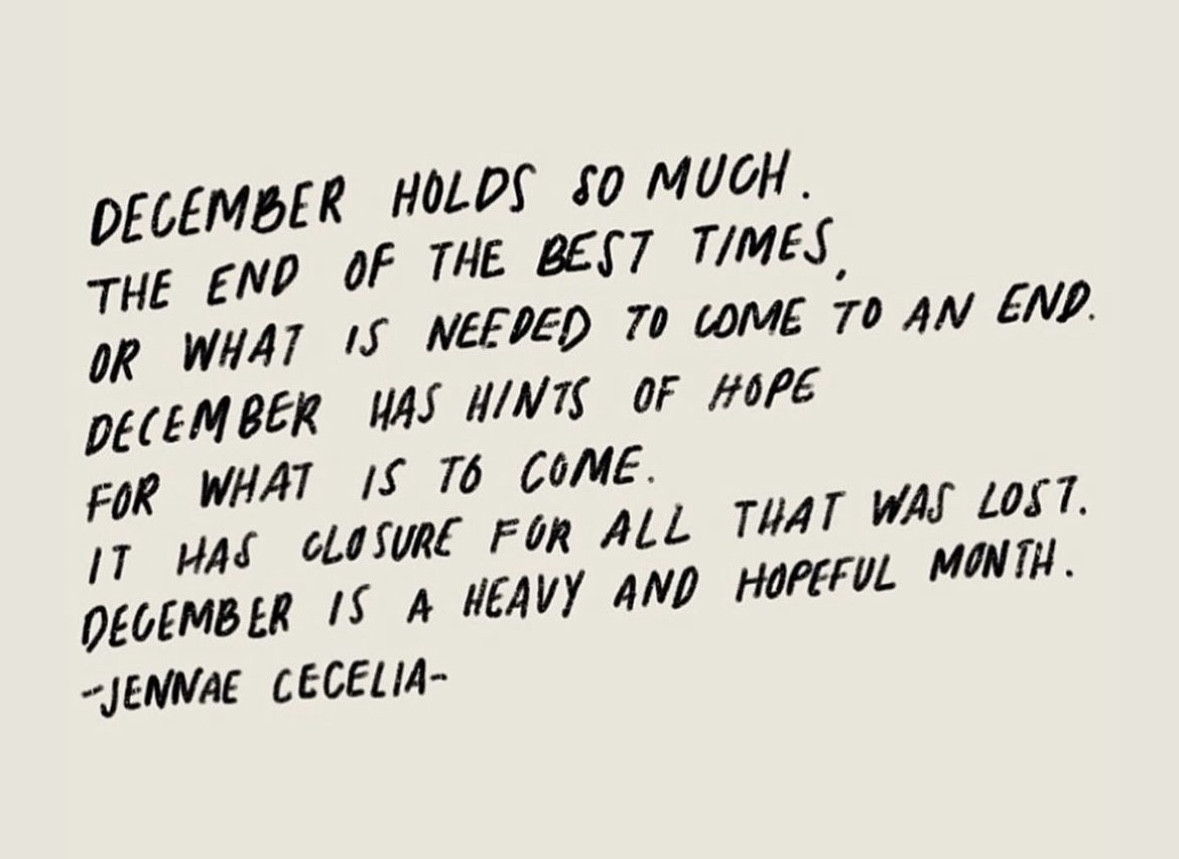 DECEMBER HOLDS SO MUCH.
THE END OF THE BEST TIMES,
OR WHAT IS NEEDED TO COME TO AN END.
DECEMBER HAS HINTS OF HOPE
FOR WHAT IS TO COME.
IT HAS CLOSURE FOR ALL THAT WAS LOST.
DECEMBER IS A HEAVY AND HOPEFUL MONTH.
-JENNAE CECELIA-